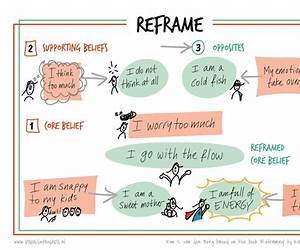 REFRAME
2 SUPPORTING BELIEFS
3 OPPOSITES
I think
too much
I do not
think at all
I am a
cold fish
My emotion
take over
1 CORE BELIEF
I worry too much
I go with the flow
REFRAMED
CORE BELIEF
I am snappy
to my kids
I am a
sweet mother
I am full of
ENERGY